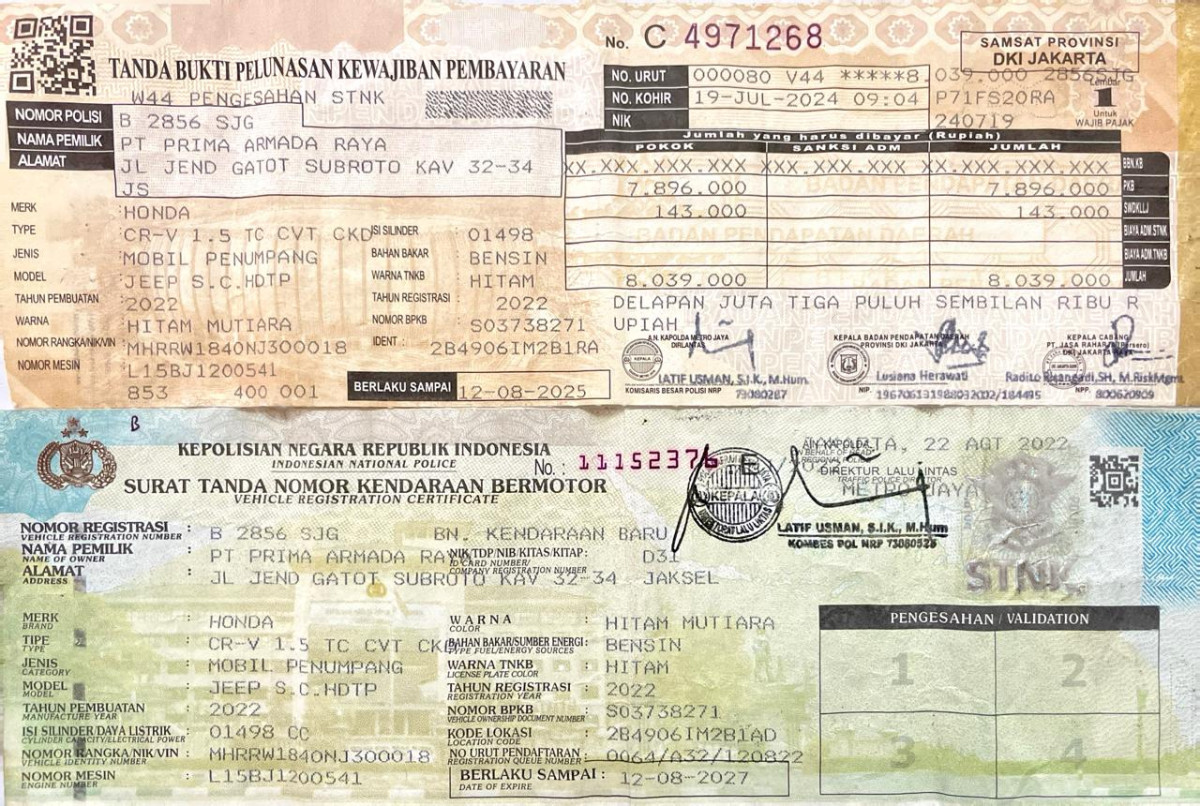 No. C 4971268
SAMSAT PROVINSI
DKI JAKARTA
TANDA BUKTI PELUNASAN KEWAJIBAN PEMBAYARAN
W44 PENGESAHAN STNK
NO. URUT 000080 V44 *****8.039.000 2856SJG
NO. KOHIR 19-JUL-2024 09:04 P71FS20RA
NIK 240719
Lembar
1
Untuk
WAJIB PAJAK
NOMOR POLISI B 2856 SJG
NAMA PEMILIK PT PRIMA ARMADA RAYA
ALAMAT JL JEND GATOT SUBROTO KAV 32-34
JS
Jumlah yang harus dibayar (Rupiah)
POKOK SANKSI ADM JUMLAH
XX.XXX.XXX.XXX XXX.XXX.XXX XX.XXX.XXX.XXX BBN.KB
7.896.000 7.896.000 PKB
143.000 143.000 SWDKLLJ
BIAYA ADM.STNK
BIAYA ADM.TNKB
8.039.000 8.039.000 JUMLAH
DELAPAN JUTA TIGA PULUH SEMBILAN RIBU R
UPIAH
MERK : HONDA
TYPE : CR-V 1.5 TC CVT CKD ISI SILINDER : 01498
JENIS : MOBIL PENUMPANG BAHAN BAKAR : BENSIN
MODEL : JEEP S.C.HDTP WARNA TNKB : HITAM
TAHUN PEMBUATAN : 2022 TAHUN REGISTRASI : 2022
WARNA : HITAM MUTIARA NOMOR BPKB : S03738271
NOMOR RANGKA/NIK/VIN : MHRRW1840NJ300018 IDENT : 2B4906IM2B1RA
NOMOR MESIN : L15BJ1200541
853 400 001 BERLAKU SAMPAI 12-08-2025
A.N. KAPOLDA METRO JAYA
LATIF USMAN, S.I.K., M.Hum.
KOMISARIS BESAR POLISI NRP 73080287
KEPALA BADAN PENDAPATAN DAERAH
PROVINSI DKI JAKARTA
Lusiana Herawati
NIP. 196706131988032002/184495
KEPALA CABANG
PT. JASA RAHARJA (Persero)
DKI JAKARTA
Radito Risangadi,SH, M.RiskMgmt
NPP. 800620909
B
KEPOLISIAN NEGARA REPUBLIK INDONESIA
INDONESIAN NATIONAL POLICE
No. : 11152376 E
SURAT TANDA NOMOR KENDARAAN BERMOTOR
VEHICLE REGISTRATION CERTIFICATE
JAKARTA, 22 AGT 2022
A.N KAPOLDA
DIREKTUR LALU LINTAS
TRAFFIC POLICE DIRECTOR
METRO JAYA
KEPALA
LATIF USMAN, S.I.K., M.Hum
KOMBES POL NRP 73080528
STNK
NOMOR REGISTRASI : B 2856 SJG BN. KENDARAAN BARU
VEHICLE REGISTRATION NUMBER
NAMA PEMILIK : PT PRIMA ARMADA RAYA NIK/TDP/NIB/KITAS/KITAP : D31
NAME OF OWNER ID CARD NUMBER/
COMPANY REGISTRATION NUMBER
ALAMAT : JL JEND GATOT SUBROTO KAV 32-34 JAKSEL
ADDRESS
MERK : HONDA WARNA : HITAM MUTIARA
BRAND COLOR
TIPE : CR-V 1.5 TC CVT CKD BAHAN BAKAR/SUMBER ENERGI : BENSIN
TYPE TYPE FUEL/ENERGY SOURCES
JENIS : MOBIL PENUMPANG WARNA TNKB : HITAM
CATEGORY LICENSE PLATE COLOR
MODEL : JEEP S.C.HDTP TAHUN REGISTRASI : 2022
MODEL REGISTRATION YEAR
TAHUN PEMBUATAN : 2022 NOMOR BPKB : S03738271
MANUFACTURE YEAR VEHICLE OWNERSHIP DOCUMENT NUMBER
ISI SILINDER/DAYA LISTRIK : 01498 CC KODE LOKASI : 2B4906IM2B1AD
CYLINDER CAPACITY/ELECTRICAL POWER LOCATION CODE
NOMOR RANGKA/NIK/VIN : MHRRW1840NJ300018 NO URUT PENDAFTARAN : 0064/A32/120822
VEHICLE IDENTITY NUMBER REGISTRATION QUEUE NUMBER
NOMOR MESIN : L15BJ1200541 BERLAKU SAMPAI : 12-08-2027
ENGINE NUMBER DATE OF EXPIRE
PENGESAHAN / VALIDATION
1 2
3 4